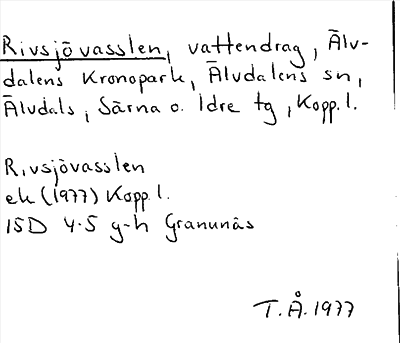 Rivsjövasslen, vattendrag, Älv-
dalens Kronopark, Älvdalens sn,
Älvdals, Särna o. Idre tg, Kopp. l.
Rivsjövasslen
ek (1977) Kopp. l.
15D 4-5 g-h Granunäs
T. Å. 1977